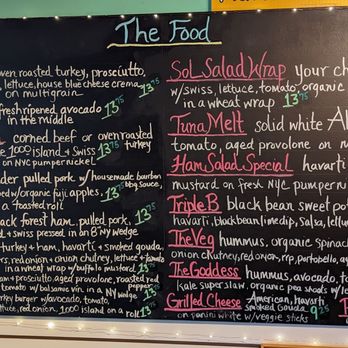 The Food
oven roasted turkey, prosciutto,
lettuce, house blue cheese crema
on multigrain 13.75
fresh ripened avocado
in the middle 13.75
corned beef or oven roasted
1000 island + Swiss turkey
on NYC pumpernickel 13.75
pulled pork w/ housemade bourbon
bbq sauce,
w/ organic fuji apples,
a toasted roll 13.75
black forest ham, pulled pork,
+ swiss pressed in an B'NY wedge 13.75
turkey + ham, havarti + smoked gouda,
red onion + onion chutney, lettuce + tomato
in a wheat wrap w/ buffalo mustard 13.75
ham + prosciutto, aged provolone, roasted red
pepper
tomato w/ balsamic vin in a NY wedge
turkey burger w/ avocado, tomato,
lettuce, red onion, 1000 island on a roll 13.75
SoL Salad Wrap your ch
w/ swiss, lettuce, tomato, organic
in a wheat wrap 13.75
Tuna Melt solid white Al
tomato, aged provolone on m
Ham Salad Special havarti
mustard on fresh NYC pumperni
Triple B black bean sweet pot
havarti, black bean/lime dip, salsa, lett
The Veg hummus, organic spinach
onion chutney, red onion, rrp, portobello, ag
The Goddess hummus, avocado, to
kale superslaw, organic pea shoots w/ le
Grilled Cheese American, havarti,
smoked Gouda
on panini white w/ veggie sticks 9.25